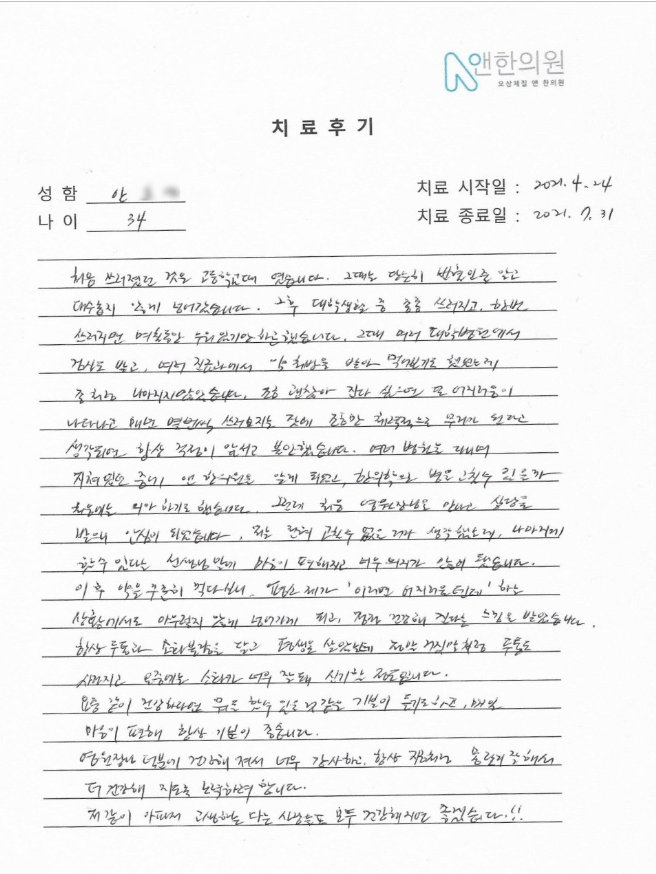 앤한의원
오상체질 앤 한의원
치료후기
성 함 안
치료 시작일 : 2021. 4. 24
나 이 34
치료 종료일 : 2021. 7. 31
처음 쓰러졌던 것은 고등학교때 였습니다. 그때는 단순히 빈혈인줄 알고
대수롭지 않게 넘어갔습니다. 그후 대학생활 중 종종 쓰러지고, 한번
쓰러지면 며칠동안 누워있기만 했습니다. 그때 여러 대학병원에서
검사도 받고, 여러 진료과에서 약 처방을 받아 먹어보기도 했었는데
좀처럼 나아지지않았습니다. 조금 괜찮아 진다 싶으면 또 어지러움이
나타나고 매년 몇번씩 쓰러지는 탓에 조금만 체력적으로 무리가 된다고
생각되면 항상 걱정이 앞서고 불안했습니다. 여러 병원을 다니며
지쳐있던 중에 앤 한의원을 알게 되었고, 한의학으로 병을 고칠수 있을까
처음에는 의아 하기도 했습니다. 그런데 처음 원장님을 만나고 상담을
받으니 안심이 되었습니다. 저는 전혀 고칠수 없을 거라 생각했는데, 나아지게
할수 있다는 선생님 말에 마음이 편해지고 너무 위로가 많이 됐습니다.
이후 약을 꾸준히 먹다보니 평소 제가 '이러면 어지러울텐데' 하는
상황에서도 아무렇지 않게 넘어가게 되고, 점점 건강해 진다는 느낌을 받았습니다.
항상 두통과 소화불량을 달고 평생을 살았는데 정말 거짓말처럼 두통도
사라지고 요즘에는 소화가 너무 잘돼 신기할 정도입니다.
요즘 같이 건강하다면 뭐든 할수 있을 것 같은 기분이 들기도하고, 매일
마음이 편해 항상 기분이 좋습니다.
원장님 덕분에 건강해 져서 너무 감사하고, 항상 지금처럼 관리 잘해서
더 건강해 지도록 노력하려 합니다.
저 같이 아파서 고생하는 다른 사람들도 모두 건강해지면 좋겠습니다.!!